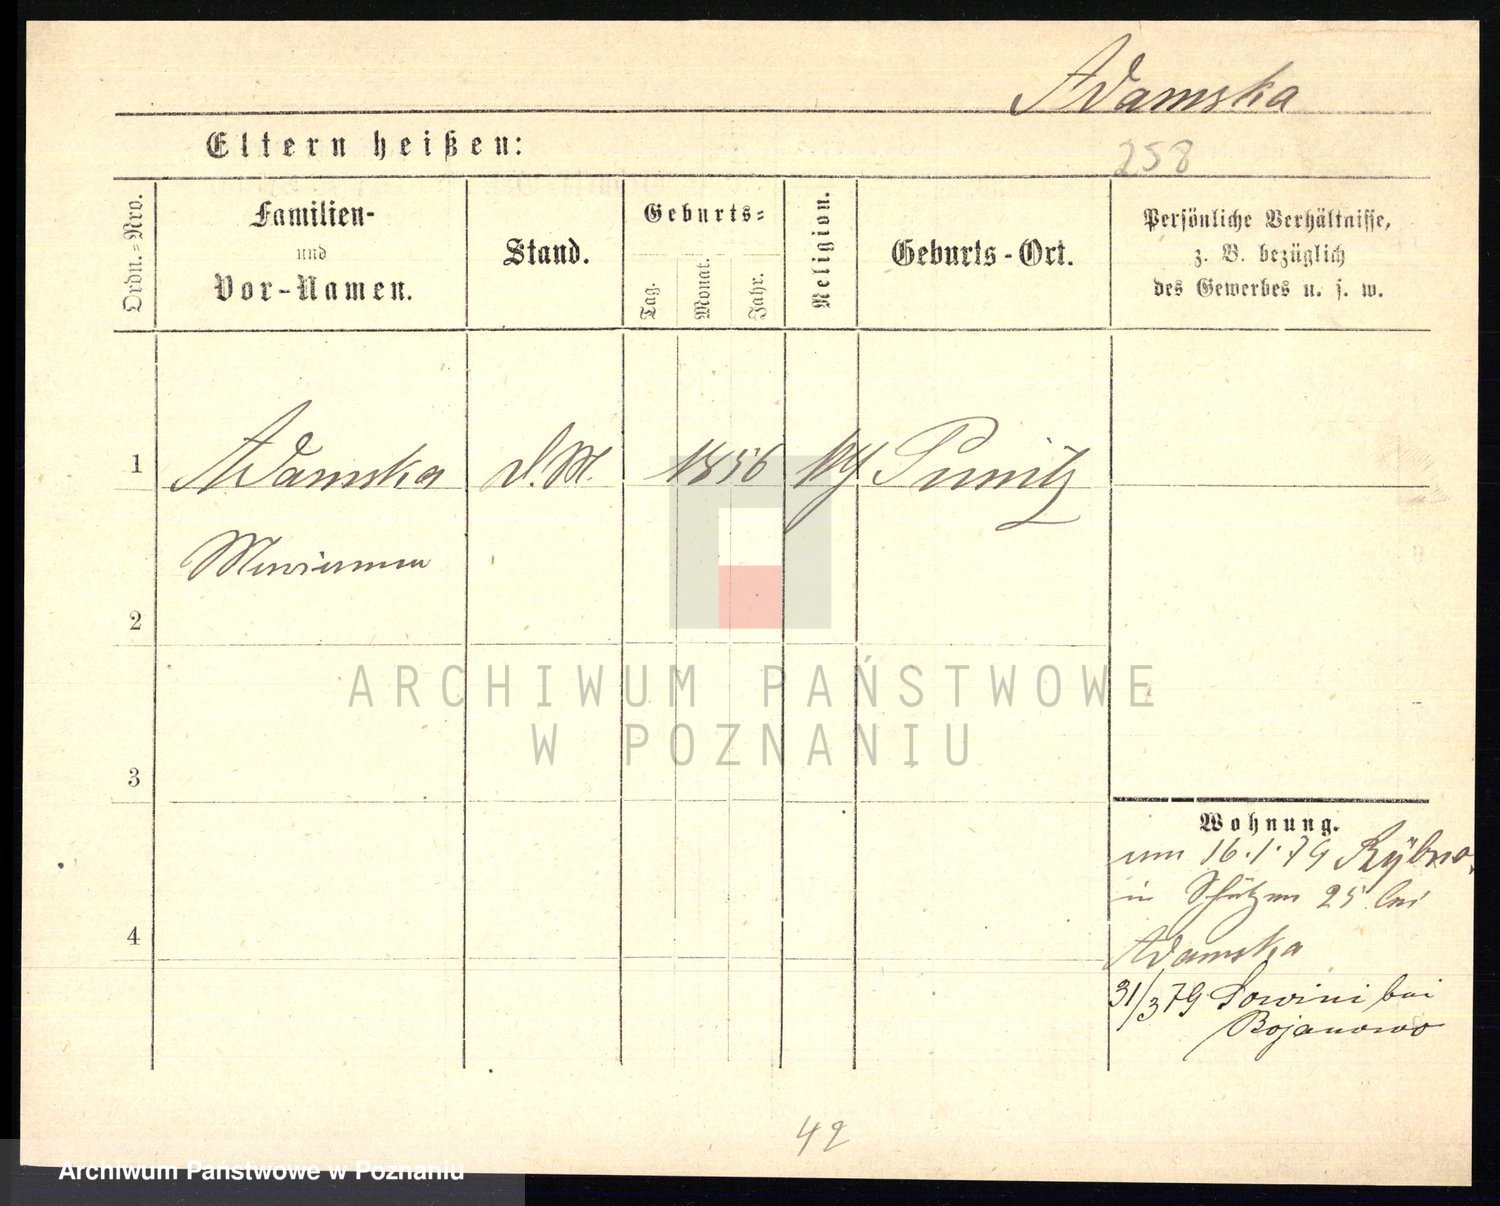 Adamska
Eltern heißen:
258
Ordn.-Nro.
Familien-
und
Vor-Namen.
Stand.
Geburts-
Tag.
Monat.
Jahr.
Religion.
Geburts-Ort.
Persönliche Verhältnisse,
z. B. bezüglich
des Gewerbes u. s. w.
1
Adamska D.M. 1856 Punitz
Marianna
2
3
4
Wohnung.
16.1.79 Rÿbno.
in Schützen 25 bei
Adamska
31/3 79 Sowini bei
Bojanowo
42
ARCHIWUM PAŃSTWOWE
W POZNANIU
Archiwum Państwowe w Poznaniu